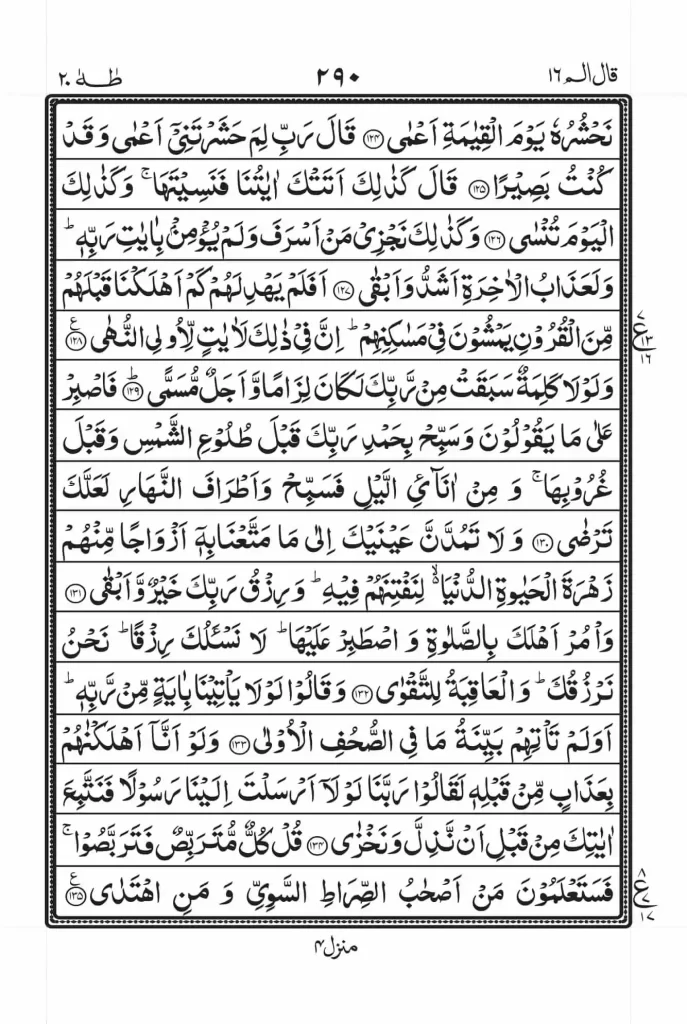 قال الم ١٦ ٢٩٠ طٰهٰ ٢٠
نَحْشُرُهٗ يَوْمَ الْقِيٰمَةِ اَعْمٰى ﴿۱۲۴﴾ قَالَ رَبِّ لِمَ حَشَرْتَنِيْۤ اَعْمٰى وَقَدْ
كُنْتُ بَصِيْرًا ﴿۱۲۵﴾ قَالَ كَذٰلِكَ اَتَتْكَ اٰيٰتُنَا فَنَسِيْتَهَا ۚ وَكَذٰلِكَ
الْيَوْمَ تُنْسٰى ﴿۱۲۶﴾ وَكَذٰلِكَ نَجْزِيْ مَنْ اَسْرَفَ وَلَمْ يُؤْمِنْۢ بِاٰيٰتِ رَبِّهٖ ؕ
وَلَعَذَابُ الْاٰخِرَةِ اَشَدُّ وَاَبْقٰى ﴿۱۲۷﴾ اَفَلَمْ يَهْدِ لَهُمْ كَمْ اَهْلَكْنَا قَبْلَهُمْ
مِّنَ الْقُرُوْنِ يَمْشُوْنَ فِيْ مَسٰكِنِهِمْ ؕ اِنَّ فِيْ ذٰلِكَ لَاٰيٰتٍ لِّاُولِي النُّهٰى ﴿۱۲۸﴾ ع
٧
ع ١٣
١٦
وَلَوْلَا كَلِمَةٌ سَبَقَتْ مِنْ رَّبِّكَ لَكَانَ لِزَامًا وَّاَجَلٌ مُّسَمًّى ﴿۱۲۹﴾ ؕ فَاصْبِرْ
عَلٰى مَا يَقُوْلُوْنَ وَسَبِّحْ بِحَمْدِ رَبِّكَ قَبْلَ طُلُوْعِ الشَّمْسِ وَقَبْلَ
غُرُوْبِهَا ۚ وَ مِنْ اٰنَآئِ الَّيْلِ فَسَبِّحْ وَاَطْرَافَ النَّهَارِ لَعَلَّكَ
تَرْضٰى ﴿۱۳۰﴾ وَ لَا تَمُدَّنَّ عَيْنَيْكَ اِلٰى مَا مَتَّعْنَا بِهٖۤ اَزْوَاجًا مِّنْهُمْ
زَهْرَةَ الْحَيٰوةِ الدُّنْيَا ۙ لِنَفْتِنَهُمْ فِيْهِ ؕ وَرِزْقُ رَبِّكَ خَيْرٌ وَّاَبْقٰى ﴿۱۳۱﴾
وَاْمُرْ اَهْلَكَ بِالصَّلٰوةِ وَ اصْطَبِرْ عَلَيْهَا ؕ لَا نَسْـَٔلُكَ رِزْقًا ؕ نَحْنُ
نَرْزُقُكَ ؕ وَالْعَاقِبَةُ لِلتَّقْوٰى ﴿۱۳۲﴾ وَقَالُوْا لَوْلَا يَاْتِيْنَا بِاٰيَةٍ مِّنْ رَّبِّهٖ ؕ
اَوَلَمْ تَاْتِهِمْ بَيِّنَةُ مَا فِي الصُّحُفِ الْاُوْلٰى ﴿۱۳۳﴾ وَلَوْ اَنَّاۤ اَهْلَكْنٰهُمْ
بِعَذَابٍ مِّنْ قَبْلِهٖ لَقَالُوْا رَبَّنَا لَوْلَاۤ اَرْسَلْتَ اِلَيْنَا رَسُوْلًا فَنَتَّبِعَ
اٰيٰتِكَ مِنْ قَبْلِ اَنْ نَّذِلَّ وَنَخْزٰى ﴿۱۳۴﴾ قُلْ كُلٌّ مُّتَرَبِّصٌ فَتَرَبَّصُوْا ۚ
فَسَتَعْلَمُوْنَ مَنْ اَصْحٰبُ الصِّرَاطِ السَّوِيِّ وَ مَنِ اهْتَدٰى ﴿۱۳۵﴾ ع
٨
ع ٧
١٧
منزل ٤